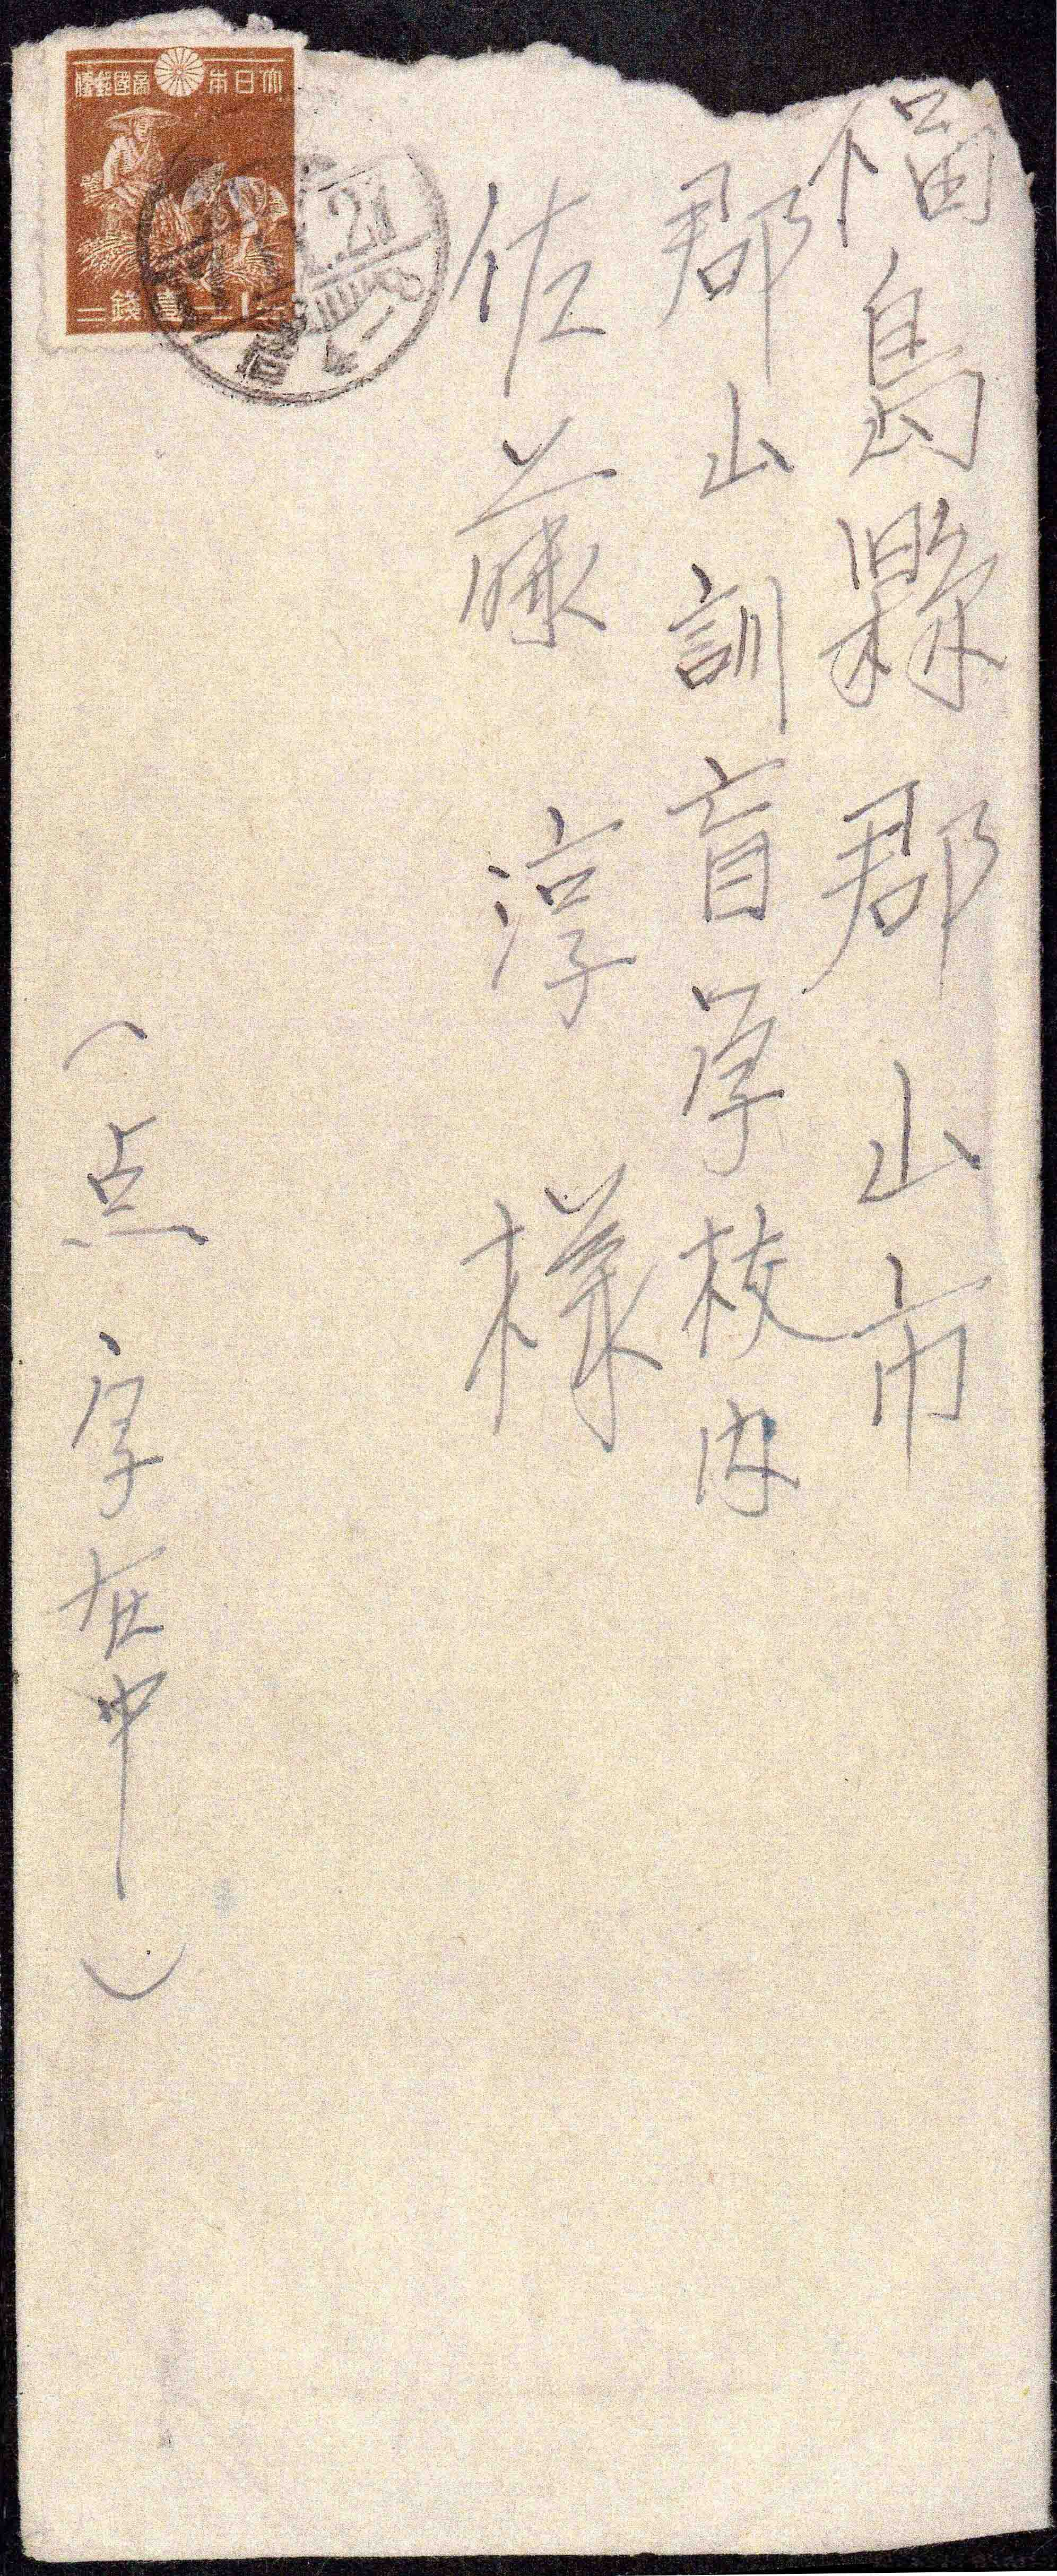 福島縣郡山市
郡山訓盲学校内
佐藤淳様
(点字在中)
大日本帝國郵便
壹錢
21